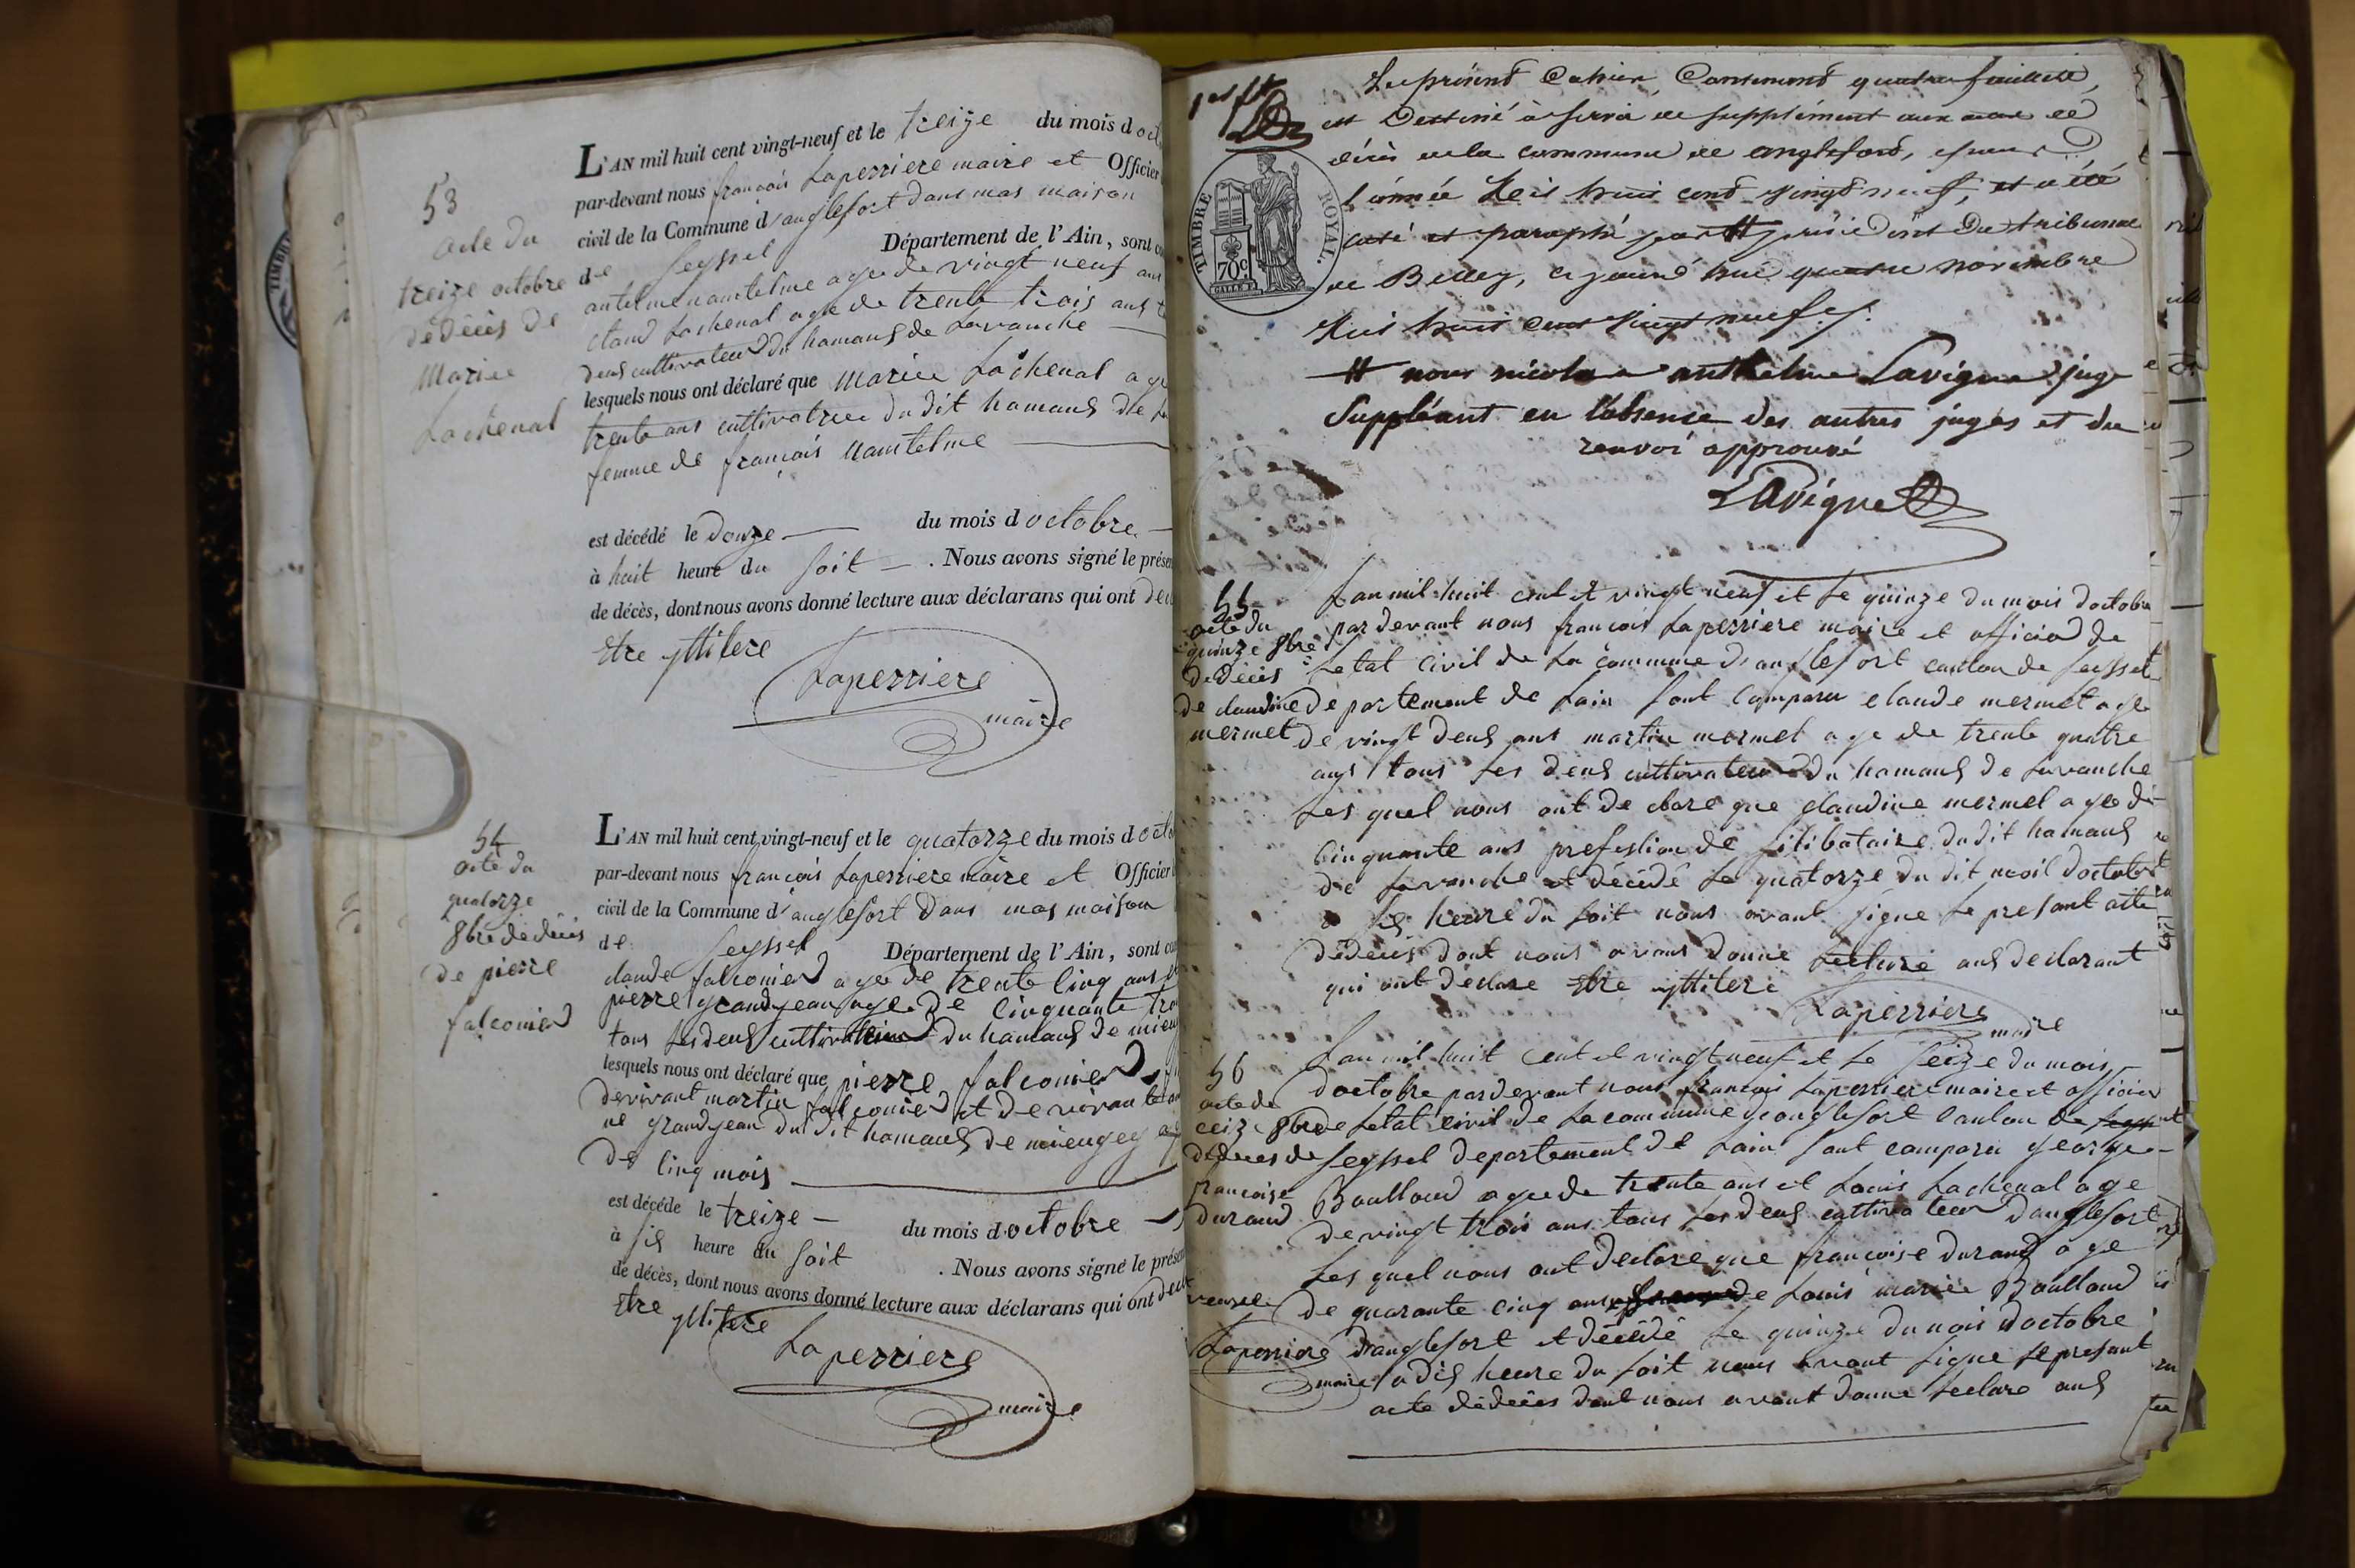 53
acte du
treize octobre
dedécès de
Mariee
Lachenal
L'AN mil huit cent vingt-neuf et le treize du mois d oct
par-devant nous françois Laperriere maire et Officier
civil de la Commune d'anglefort dans mas maison
de Seyssel Département de l'Ain, sont co
antelme nantelme age de vingt neuf ans
claud Lachenal age de trente trois ans t
deus cultivateur du hamaus de Lavanche
lesquels nous ont déclaré que Mariee Lachenal age
trente ans cultivatrice du dit hamaus de La
femme de françois nantelme
est décédé le Douze du mois d octobre
à huit heure du soit . Nous avons signé le présen
de décès, dont nous avons donné lecture aux déclarans qui ont dec
Etre yllitere
Laperriere
maire
54
acte du
quatorze
8bre dedécès
de pierre
falconier
L'AN mil huit cent vingt-neuf et le quatorze du mois d octo
par-devant nous françois Laperriere maire et Officier
civil de la Commune d'anglefort dans mas maison
de Seyssel Département de l'Ain, sont co
claude falconier age de trente cinq ans et
pierre grandjean age de cinquante tro
tous Les deus cultivateur du hamaus de mieug
lesquels nous ont déclaré que pierre falconier
devivant martin falconier et de vivante
ne grandjean du dit hamaus de mieugey ag
De cinq mois
est décédé le treize du mois d octobre
à sis heure du soit . Nous avons signé le présen
de décès, dont nous avons donné lecture aux déclarans qui ont decl
Etre yllitere
Laperriere
maire
1er flt
TIMBRE ROYAL.
70c
Le présent Cahier, Contenant quatre feuillets,
est Destiné à servir de supplément aux actes de
décès de la commune de anglefort, pour
l'année Mil huit cent vingt neuf, et a été
coté et paraphé par # président Du tribunal
de Belley, ce jourd'hui quatre novembre
Mil huit Cent vingt neuf
# nous nicolas anthelme Lavigne juge
Suppléant en l'absence des autres juges et du
renvoi approuvé
Lavigne
55
acte du
quinze 8bre
dedécès
De claudine
mermet
Lan mil huit cent et vingt neuf et Le quinze du mois doctobre
par devant nous françois Laperriere maire et officier de
Letat civil de La commune d'anglefort canton de Seyssel
departement de Lain sont comparu claude mermet age
de vingt deus ans martin mermet age de trente quatre
ans tous Les deus cultivateur du hamaus de Lavanche
Les quel nous ont de clare que claudine mermet age de
cinquante ans profession de silibataire dudit hamaus
de Lavanche et décédé Le quatorze du dit mois doctobre
a sis heure du soit nous avant signe Le present acte
dedécès dont nous avons donné Lecture aus declarant
qui ont declare Etre yllitere
Laperriere
maire
56
acte du
ceize 8bre
dedeces de
francoise
durand
Lan mil huit cent et vingt neuf et Le seize du mois
doctobre pardevant nous francois Laperriere maire et officier
de Letat civil de La commune d'anglefort canton de
Seyssel departement de Lain sont comparu george
Baulloud age de trente ans et Louis Lachenal age
de vingt trois ans tous Les deus cultivateur d'anglefort
Les quel nous ont declare que francoise durand age
de quarante cinq ans de Louis mariee Baulloud
d'anglefort et décédé Le quinze du mois doctobre
a dis heure du soit nous avont signe Le present
acte dedécès dont nous avont donne Lecture aus
veuve
Laperriere
maire